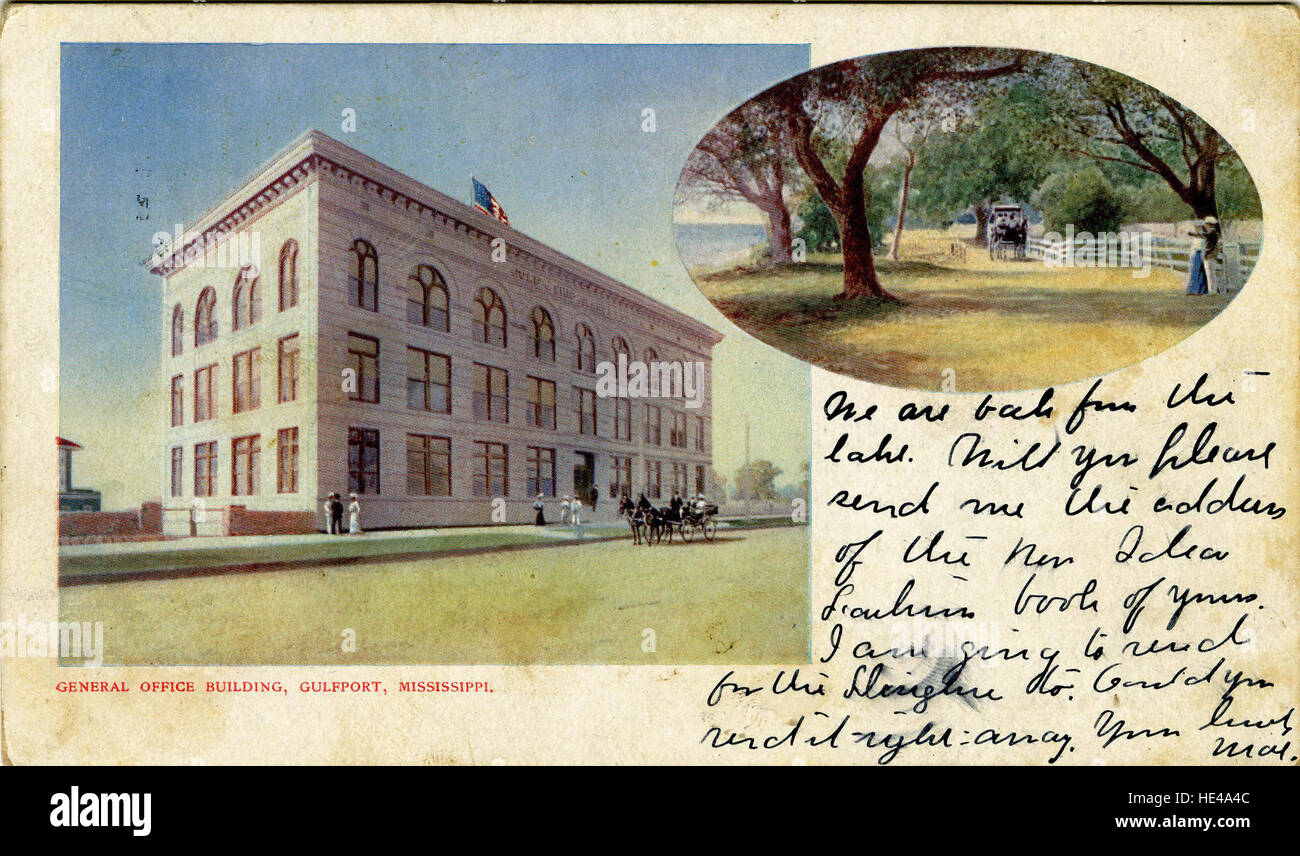 GULF &
GENERAL OFFICE BUILDING, GULFPORT, MISSISSIPPI.
We are back from the
lake. Will you please
send me the address
of the New Idea
book of yours.
I am going to send
for the Shingline etc. Could you
send it right-away. Your
Mae.
a alamy stock photo
alamy
HE4A4C
www.alamy.com